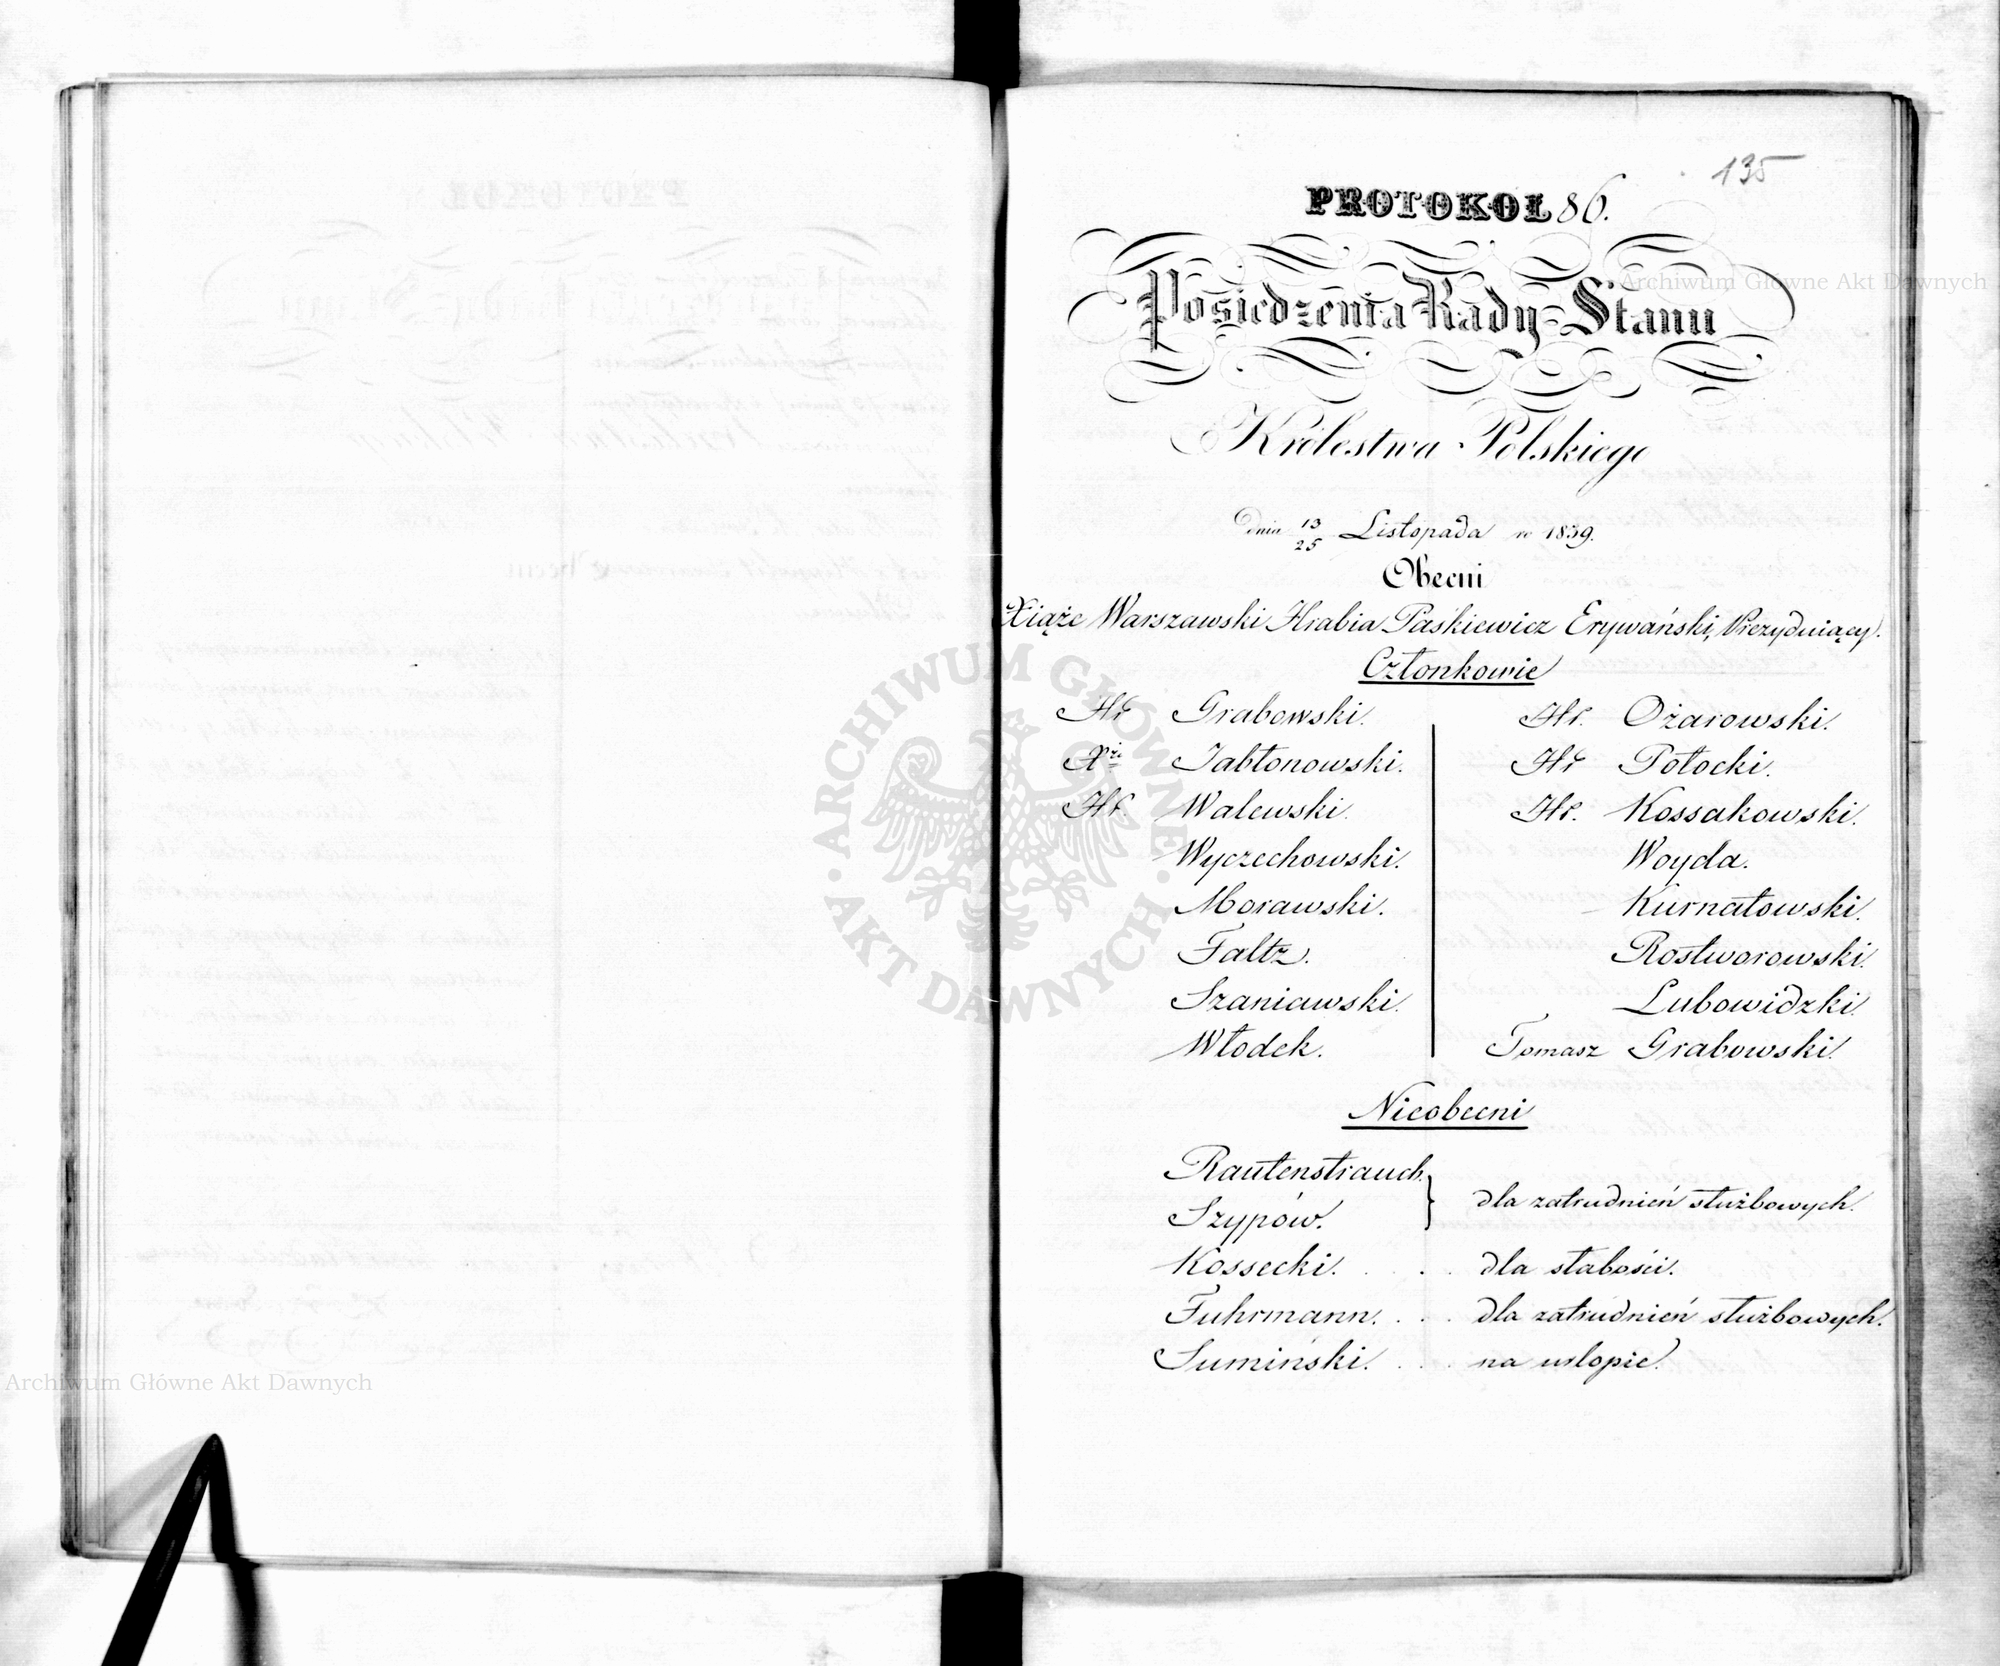 135
PROTOKOŁ 86.
Posiedzenia Rady Stanu
Królestwa Polskiego
dnia 13/25 Listopada r 1839.
Obecni
Xiąże Warszawski Hrabia Paskiewicz Erywański, Prezydujący.
Członkowie
Hr Grabowski. Hr. Ożarowski.
Xże Jabłonowski. Hr Potocki.
Hr. Walewski. Hr. Kossakowski.
Wyczechowski. Woyda.
Morawski. Kurnatowski.
Faltz. Rostworowski.
Szaniawski. Lubowidzki.
Włodek. Tomasz Grabowski.
Nieobecni
Rautenstrauch.
Szypów. } dla zatrudnień służbowych.
Kossecki. . . . dla słabości.
Fuhrmann. . . . dla zatrudnień służbowych.
Sumiński. . . . na urlopie.
Archiwum Główne Akt Dawnych
ARCHIWUM GŁÓWNE
AKT DAWNYCH
Archiwum Główne Akt Dawnych